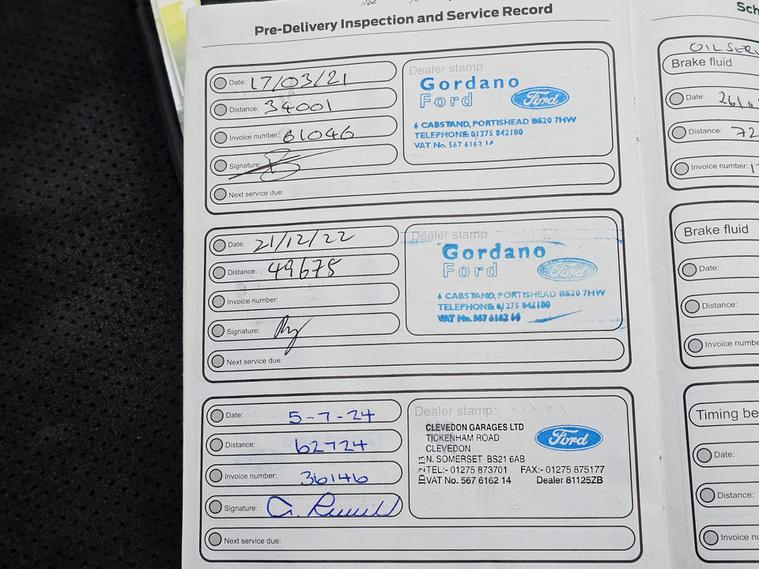 Pre-Delivery Inspection and Service Record
Date: 17/03/21
Distance: 34001
Invoice number: 61046
Signature:
Next service due:
Dealer stamp
Gordano
Ford
Ford
6 CABSTAND, PORTISHEAD BS20 7HW
TELEPHONE: 01275 842180
VAT No. 567 6162 14
Date: 21/12/22
Distance: 49675
Invoice number:
Signature:
Next service due:
Dealer stamp
Gordano
Ford
Ford
6 CABSTAND, PORTISHEAD BS20 7HW
TELEPHONE: 01275 842180
VAT No. 567 6162 14
Date: 5-7-24
Distance: 62724
Invoice number: 36146
Signature:
Next service due:
Dealer stamp
CLEVEDON GARAGES LTD
TICKENHAM ROAD
CLEVEDON
N. SOMERSET BS21 6AB
TEL:- 01275 873701 FAX:- 01275 875177
VAT No. 567 6162 14 Dealer 81125ZB
Ford
Sch
OIL SER
Brake fluid
Date:
Distance: 72
Invoice number:
Brake fluid
Date:
Distance:
Invoice numb
Timing be
Date:
Distance:
Invoice nu